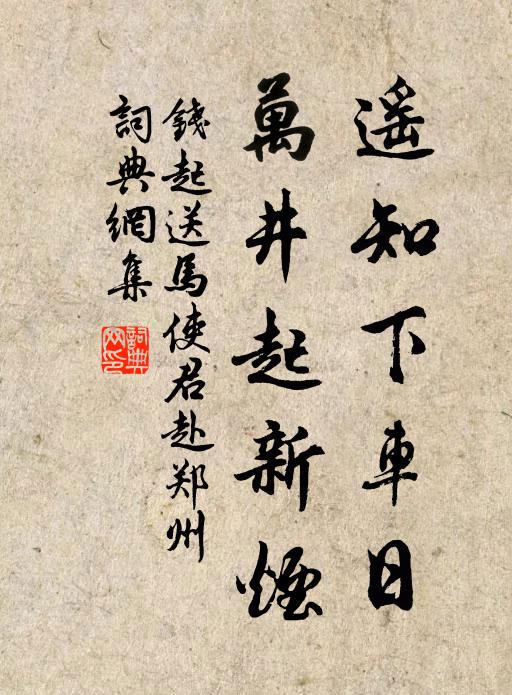 遥知下車日
萬井起新煙
錢起送馬使君赴郑州
詞典網集
詞典网印